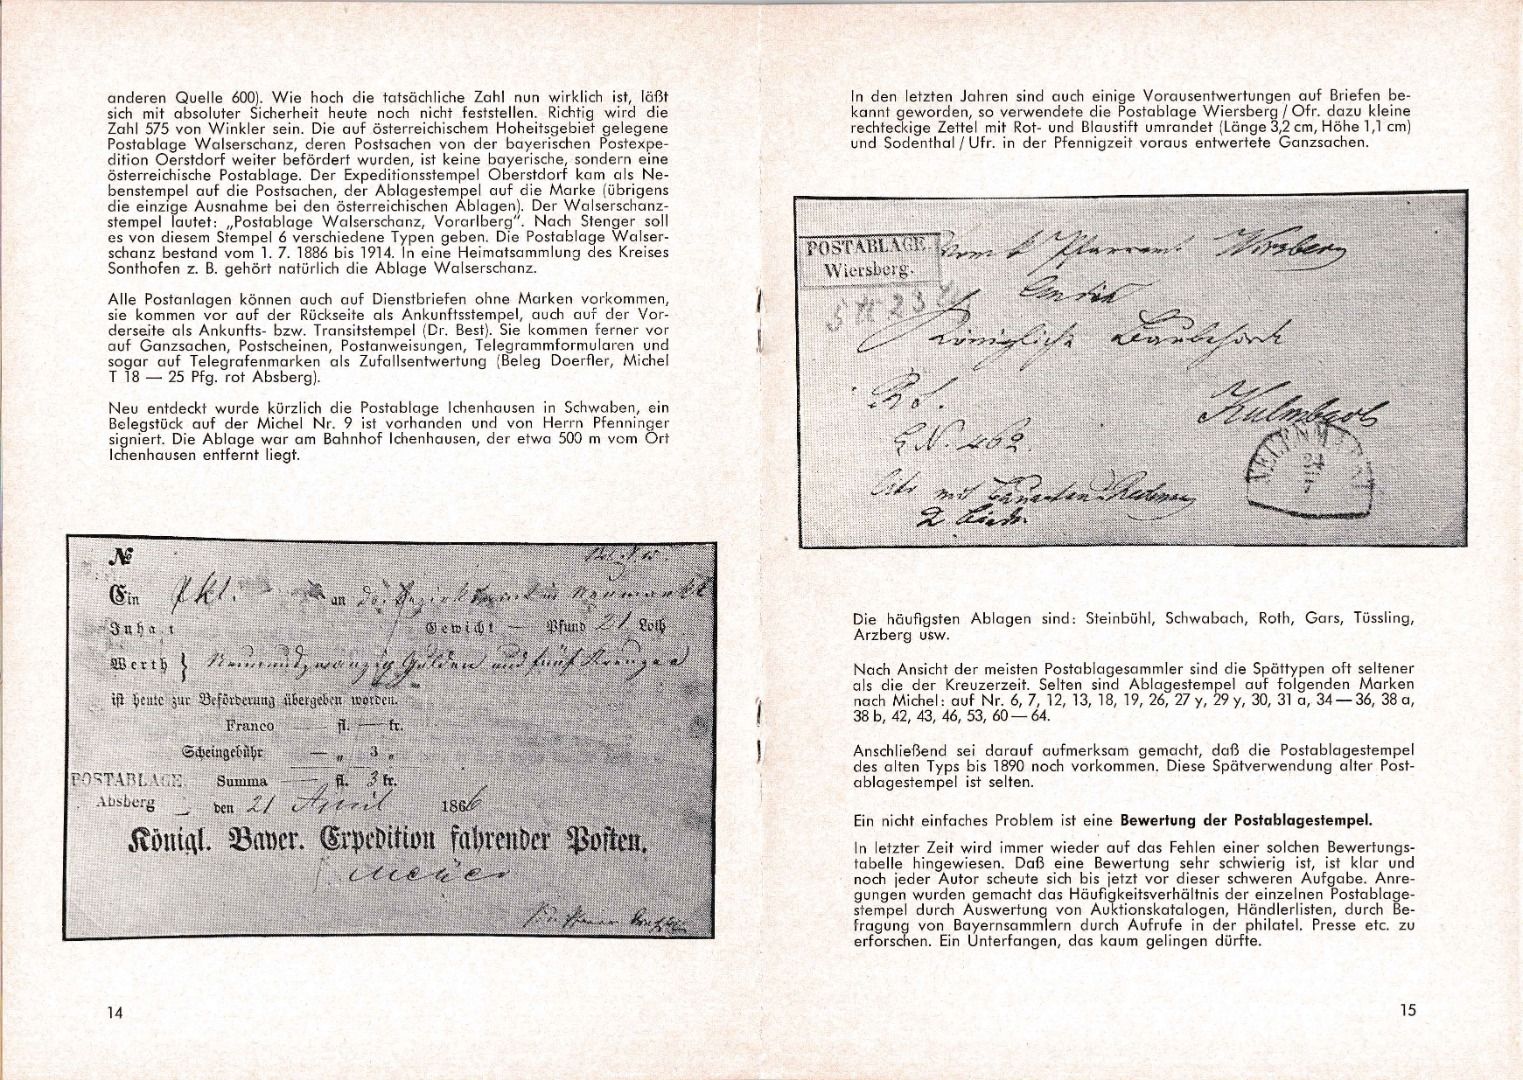 anderen Quelle 600). Wie hoch die tatsächliche Zahl nun wirklich ist, läßt
sich mit absoluter Sicherheit heute noch nicht feststellen. Richtig wird die
Zahl 575 von Winkler sein. Die auf österreichischem Hoheitsgebiet gelegene
Postablage Walserschanz, deren Postsachen von der bayerischen Postexpe-
dition Oerstdorf weiter befördert wurden, ist keine bayerische, sondern eine
österreichische Postablage. Der Expeditionsstempel Oberstdorf kam als Ne-
benstempel auf die Postsachen, der Ablagestempel auf die Marke (übrigens
die einzige Ausnahme bei den österreichischen Ablagen). Der Walserschanz-
stempel lautet: „Postablage Walserschanz, Vorarlberg". Nach Stenger soll
es von diesem Stempel 6 verschiedene Typen geben. Die Postablage Walser-
schanz bestand vom 1. 7. 1886 bis 1914. In eine Heimatsammlung des Kreises
Sonthofen z. B. gehört natürlich die Ablage Walserschanz.
Alle Postanlagen können auch auf Dienstbriefen ohne Marken vorkommen,
sie kommen vor auf der Rückseite als Ankunftsstempel, auch auf der Vor-
derseite als Ankunfts- bzw. Transitstempel (Dr. Best). Sie kommen ferner vor
auf Ganzsachen, Postscheinen, Postanweisungen, Telegrammformularen und
sogar auf Telegrafenmarken als Zufallsentwertung (Beleg Doerfler, Michel
T 18 — 25 Pfg. rot Absberg).
Neu entdeckt wurde kürzlich die Postablage Ichenhausen in Schwaben, ein
Belegstück auf der Michel Nr. 9 ist vorhanden und von Herrn Pfenninger
signiert. Die Ablage war am Bahnhof Ichenhausen, der etwa 500 m vom Ort
Ichenhausen entfernt liegt.
№
Ein Pkl. an
Inhalt Gewicht — Pfund 21 Loth
Werth } Neunundzwanzig Gulden und fünf Kreuzer
ist heute zur Beförderung übergeben worden.
Franco — fl. — kr.
Scheingebühr — „ 3 „
POSTABLAGE Summa — fl. 3 kr.
Absberg den 21 April 1866
Königl. Bayer. Expedition fahrender Posten.
14
In den letzten Jahren sind auch einige Vorausentwertungen auf Briefen be-
kannt geworden, so verwendete die Postablage Wiersberg / Ofr. dazu kleine
rechteckige Zettel mit Rot- und Blaustift umrandet (Länge 3,2 cm, Höhe 1,1 cm)
und Sodenthal / Ufr. in der Pfennigzeit voraus entwertete Ganzsachen.
POSTABLAGE Vom k Pfarramt Wirsberg
Wiersberg.
An die
Königliche
Kulmbach
E. N. 462.
Die häufigsten Ablagen sind: Steinbühl, Schwabach, Roth, Gars, Tüssling,
Arzberg usw.
Nach Ansicht der meisten Postablagesammler sind die Spättypen oft seltener
als die der Kreuzerzeit. Selten sind Ablagestempel auf folgenden Marken
nach Michel: auf Nr. 6, 7, 12, 13, 18, 19, 26, 27 y, 29 y, 30, 31 a, 34 — 36, 38 a,
38 b, 42, 43, 46, 53, 60 — 64.
Anschließend sei darauf aufmerksam gemacht, daß die Postablagestempel
des alten Typs bis 1890 noch vorkommen. Diese Spätverwendung alter Post-
ablagestempel ist selten.
Ein nicht einfaches Problem ist eine Bewertung der Postablagestempel.
In letzter Zeit wird immer wieder auf das Fehlen einer solchen Bewertungs-
tabelle hingewiesen. Daß eine Bewertung sehr schwierig ist, ist klar und
noch jeder Autor scheute sich bis jetzt vor dieser schweren Aufgabe. Anre-
gungen wurden gemacht das Häufigkeitsverhältnis der einzelnen Postablage-
stempel durch Auswertung von Auktionskatalogen, Händlerlisten, durch Be-
fragung von Bayernsammlern durch Aufrufe in der philatel. Presse etc. zu
erforschen. Ein Unterfangen, das kaum gelingen dürfte.
15